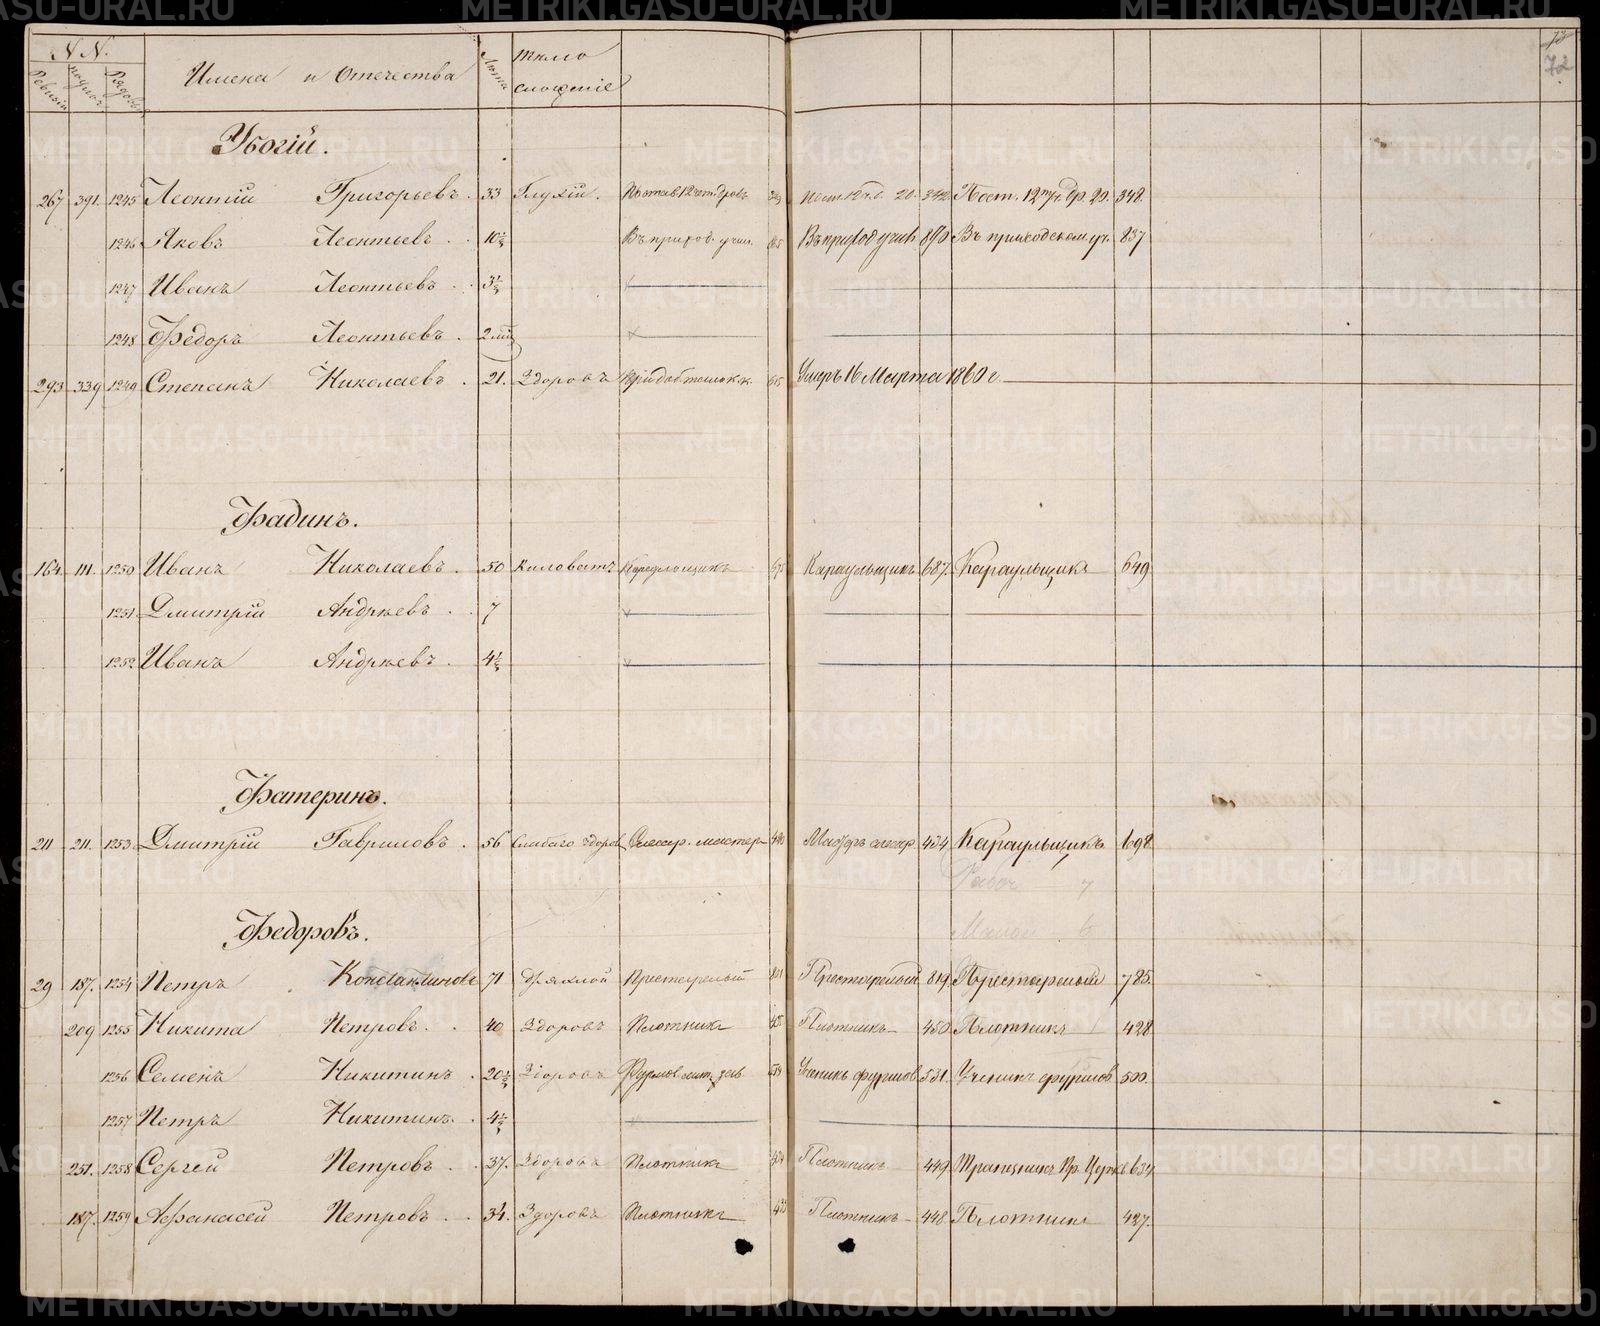 N.N. Имена и Отчества Лѣта тѣло
Ревизiи Рядовы сложенiе
72
Убогiй.
267 391. 1245 Леонтiй Григорьевъ. 33 Глухiй. 20. 342. Пост. 12 др. 20. 348.
1246 Яковъ Леонтьевъ . . 10½ Въ приход. учил. Въ приход учил 890 Въ приходском уч. 837
1247 Иванъ Леонтьевъ . . 3½
1248 Ѳедоръ Леонтьевъ . 2
293 339 1249 Степанъ Николаевъ . 21. Здоровъ Умеръ 16 Марта 1860 г.
Фадинъ.
164. 111. 1250 Иванъ Николаевъ . 50 Киловатъ Караульщикъ Караульщикъ 687. Караульщикъ 649
1251 Дмитрiй Андрѣевъ . . 7
1252 Иванъ Андрѣевъ . 4½
Фатеринъ.
211 211. 1253 Дмитрiй Гавриловъ . 56 Слабаго здоров Слесар. мастер 434 Караульщикъ 698.
Ѳедоровъ.
29 187. 1254 Петръ Константиновъ 71 Дряхлой Престарелый Престарелый 819. Престарелый 785.
209 1255 Никита Петровъ . . 40 Здоровъ Плотникъ Плотникъ 450 Плотникъ 428
1256 Семенъ Никитинъ . 20½ Здоровъ Ученикъ фурмов 531. Ученикъ фурмов 500.
1257 Петръ Никитинъ. . 4½
251. 1258 Сергей Петровъ . . 37. Здоровъ Плотникъ Плотникъ 449. 634.
187. 1259 Афанасей Петровъ . . 34. Здоровъ Плотникъ Плотникъ 448 Плотникъ 427.
METRIKI.GASO-URAL.RU